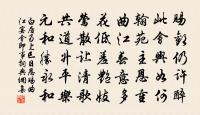 賜歡仍許醉
此會興如何
翰苑主恩重
曲江春意多
花低羞艷妓
鶯散讓清歌
共道昇平樂
元和勝永和
白居易上巳日恩賜曲
江宴會即事